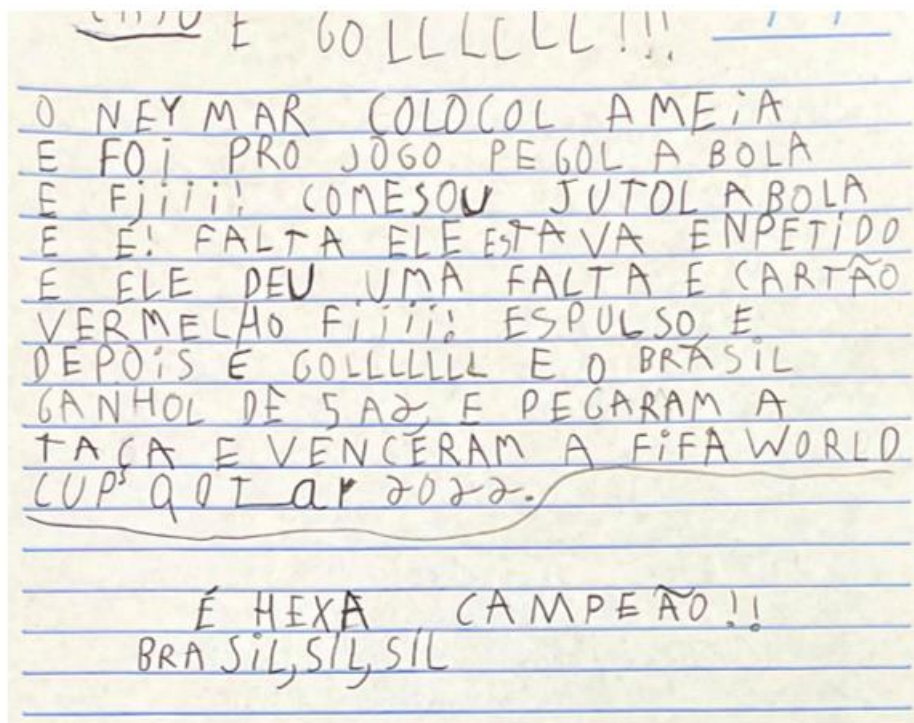 E GOLLLLLLL!!!
O NEYMAR COLOCOL AMEiA
E FOi PRO JOGO PEGOL A BOLA
E Fjiiii! COMESOU JUTOL ABOLA
E É! FALTA ELE ESTAVA ENPETiDO
E ELE DEU UMA FALTA E CARTÃO
VERMELHO Fiiiii! ESPULSO E
DEPOiS E GOLLLLLLL E O BRASiL
GANHOL DE 5 A 2, E PEGARAM A
TAÇA E VENCERAM A FiFA WORLD
CUPS QOTar 2022.
É HEXA CAMPEÃO!!
BRASiL, SiL, SiL